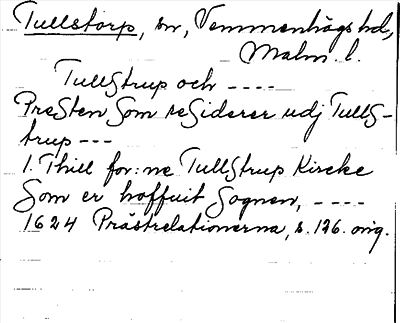 Tullstorp, sn, Vemmenhögs hd,
Malm. l.
Tullstrup och ----
Presten som residerer udj Tulls-
trup ---
1. Thill for:ne Tullstrup Kircke
som er hoffuit Sognen, ----
1624 Prästrelationerna, s. 126. orig.